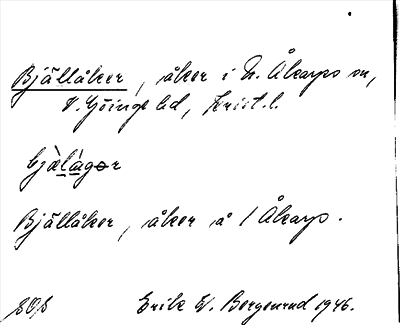 Bjällåker, åker i N. Åkarps sn,
V. Göinge hd, Krist. l.
bjä̀lágər
Bjällåker, åker å 1 Åkarp.
Erik W. Bergenrud 1946.